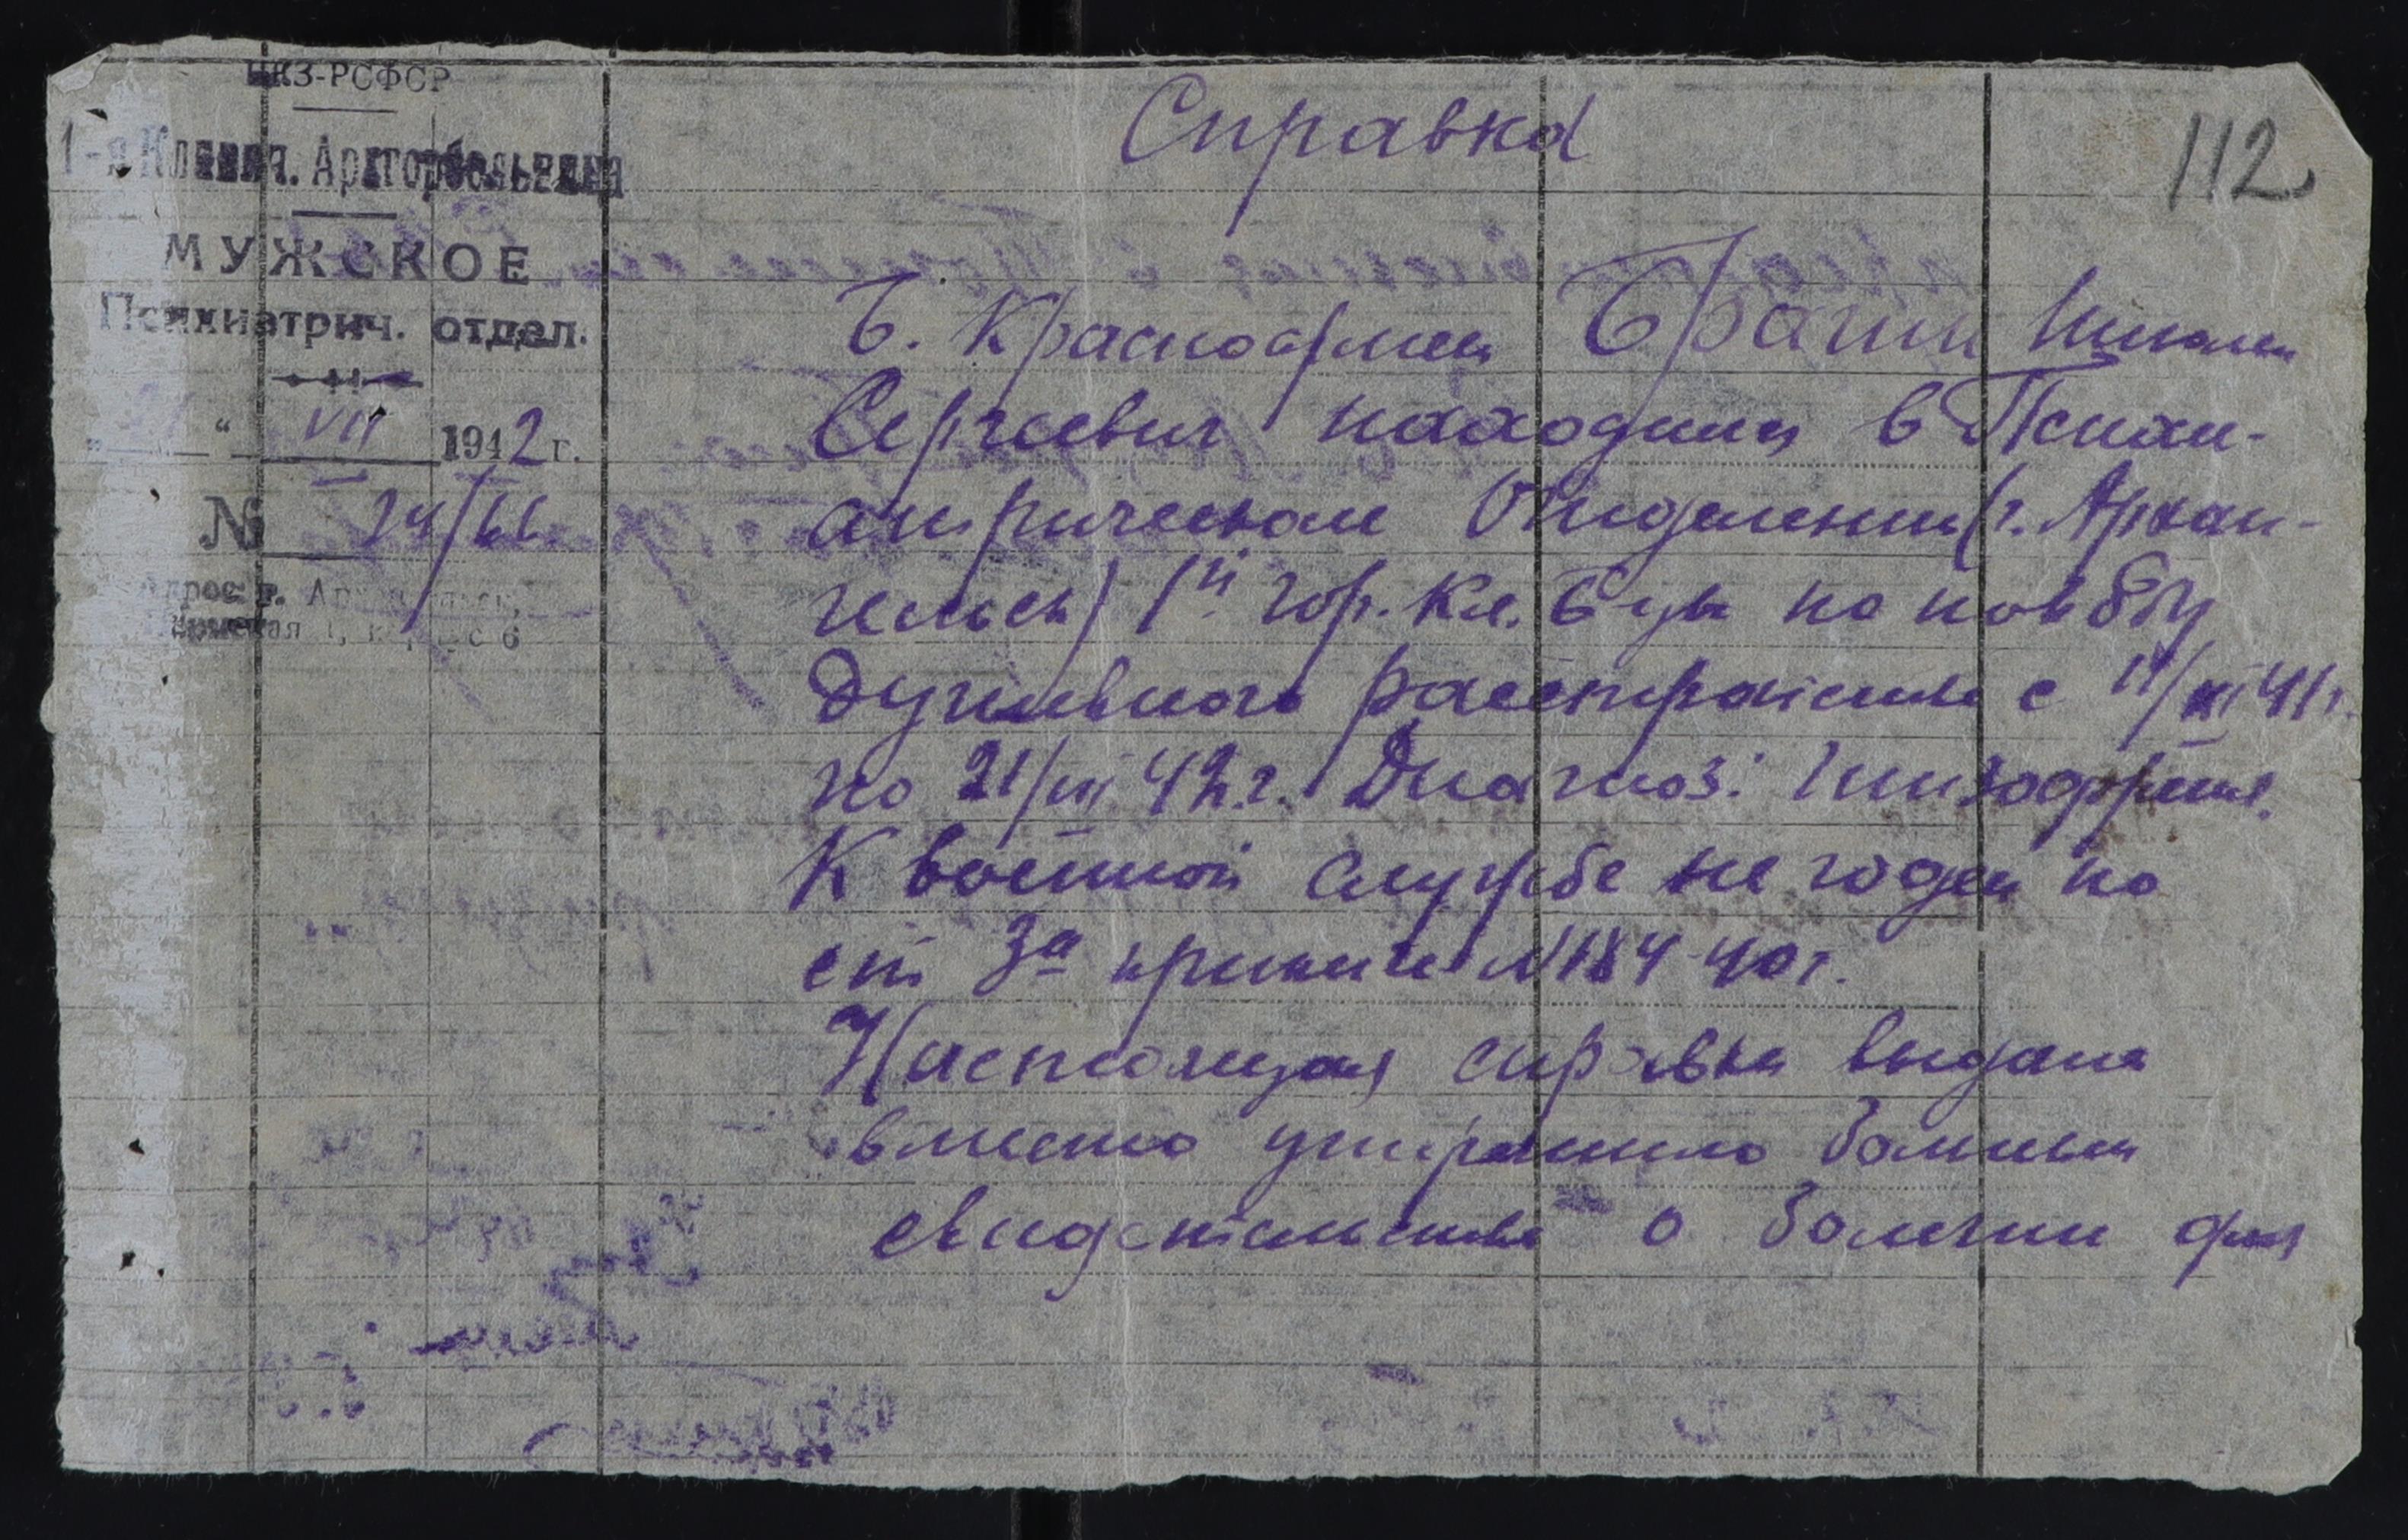 НКЗ-РСФСР
1-я Клинич. Аргорбольница
МУЖСКОЕ
Психиатрич. отдел.
" 21 " VII 1942 г.
№ 24/66
Адрес г. Архангельск,
1, корпус 6
112
Справка
Б. Красноармеец Брагин Николай
Сергеевич находился в Психи-
атрическом Отделении (г. Архан-
гельск) 1й Гор. Кл. Б-цы по поводу
душевного расстройства с 11/XI 41 г.
по 21/VII 42 г. Диагноз: Шизофрения.
К военной службе не годен по
ст 3а приказа N 184 40 г.
Настоящая справка выдана
вместо утерянного больным
свидетельства о болезни для